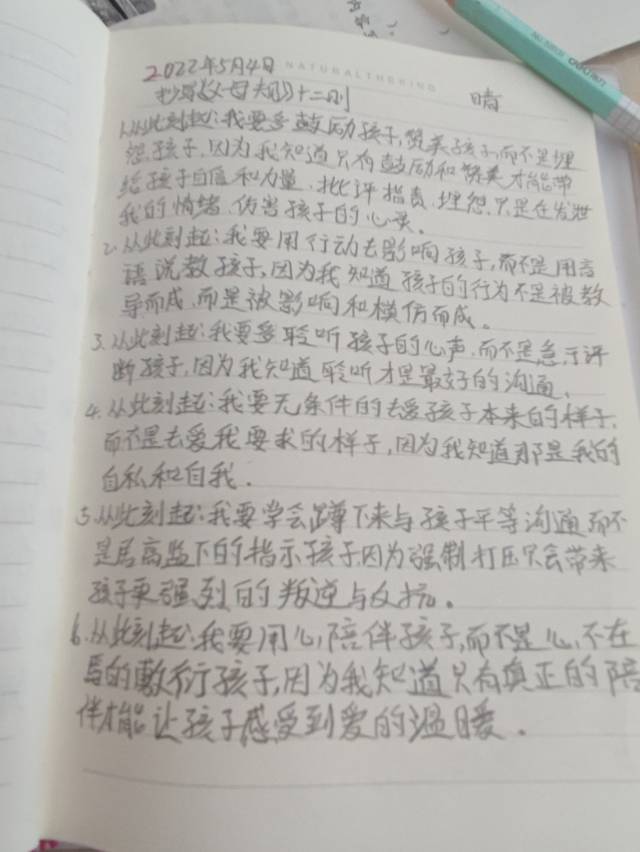 2022年5月4日 NATURALTHEKING 晴
抄写《父母规》十二则
1.从此刻起:我要多鼓励孩子,赞美孩子,而不是埋
怨孩子,因为我知道只有鼓励和赞美才能带
给孩子自信和力量,批评指责、埋怨只是在发泄
我的情绪,伤害孩子的心灵。
2.从此刻起:我要用行动去影响孩子,而不是用言
语说教孩子,因为我知道孩子的行为不是被教
导而成,而是被影响和模仿而成。
3.从此刻起:我要多聆听孩子的心声,而不是急于评
断孩子,因为我知道聆听才是最好的沟通。
4.从此刻起:我要无条件的去爱孩子本来的样子,
而不是去爱我要求的样子,因为我知道那是我的
自私和自我.
5.从此刻起:我要学会蹲下来与孩子平等沟通,而不
是居高临下的指示孩子,因为强制打压只会带来
孩子更强烈的叛逆与反抗。
6.从此刻起:我要用心陪伴孩子,而不是心不在
焉的敷衍孩子,因为我知道只有真正的陪
伴才能让孩子感受到爱的温暖.